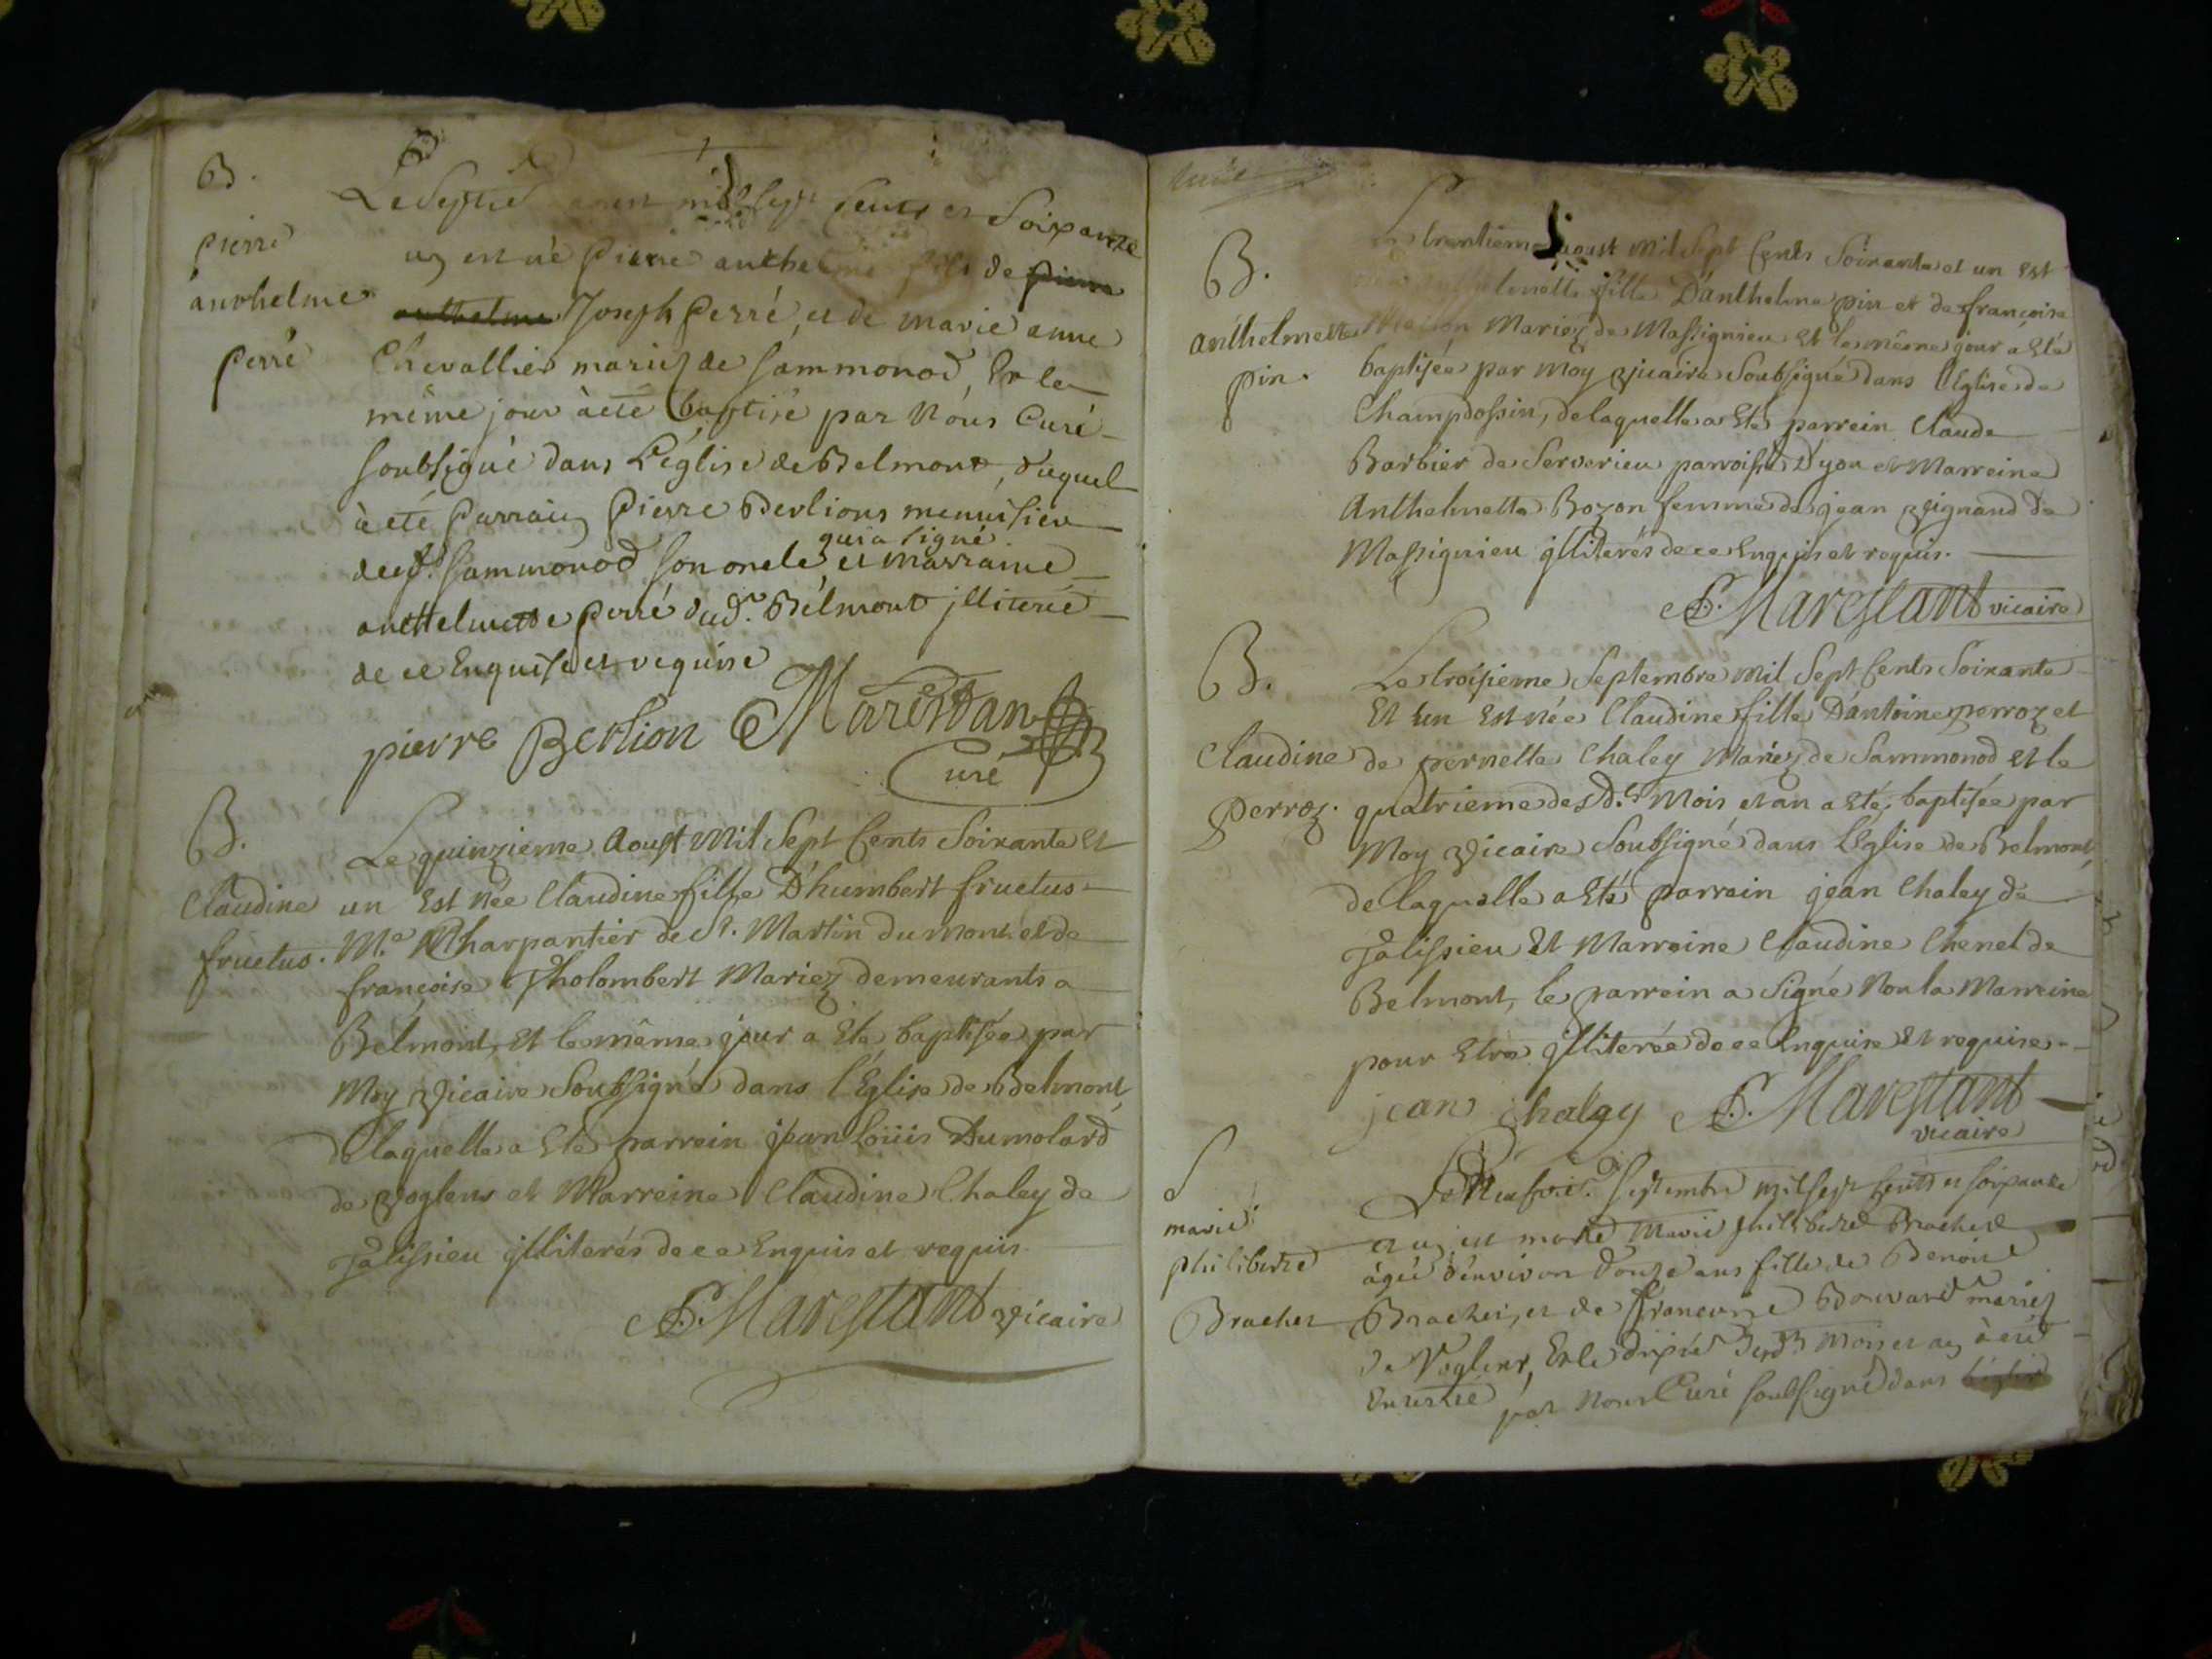 B.
pierre
anthelme
perré
Le Septie aout mil sept cents et Soixante
un est né pierre anthelme fils de pierre
anthelme Joseph perré, et de marie anne
Chevallier mariez de Sammonod, Et le
même jour à eté baptisé par Nous Curé
soubsigné dans L'église de Belmont, duquel
à eté parrain pierre Berlions menuisier
qui a signé
dud. Sammonod son oncle, et marraine
anthelmette perré dud. Bélmont illiterée
de ce Enquise et requise
pierre Berlion Marestan
curé
B.
Claudine
fructus.
Le quinzieme Aoust Mil Sept Cents Soixante Et
un Est Née Claudine fille D'humbert fructus
Me Charpantier de St. Martin du mont et de
françoise Tholombert Mariez demeurants a
Bélmont, Et le même jour a Eté baptisée par
Moy Vicaire Soubsigné dans l'Eglise de Belmont,
de laquelle a Eté parrein jean Loüis Dumolard
de Voglens et Marreine Claudine Chaley de
jalissieu jlliterés de ce Enquis et requis.
S. Marestant Vicaire
B.
Anthelmette
pin.
Le trentieme aoust Mil Sept Cents Soixante et un Est
née anthelmette fille D'anthelme pin et de françoise
Mariez de Massignieu Et le même jour a Eté
baptisée par Moy Vicaire Soubsigné dans l'Eglise de
Champdossin, de laquelle a Eté parrein Claude
Barbier de Serverieu parroisse D'yon et Marreine
Anthelmette Bozon femme de jean Vignand de
Massignieu jlliterés de ce Enquis et requis.
S. Marestant vicaire
B.
Claudine
perroz.
Le troisieme Septembre Mil Sept Cents Soixante
Et un Est Née Claudine fille D'antoine perroz et
de pernette Chaley Mariez de Sammonod et le
quatrieme desd.ts Mois et an a Eté baptisée par
Moy Vicaire Soubsigné dans l'Eglise de Belmont,
de laquelle a Eté parrein jean Chaley de
jalissieu Et Marreine Claudine Chenet de
Belmont, le parrein a Signé Non la Marreine
pour Etre jlliterée de ce Enquise Et requise.
jean Chaley S. Marestant
vicaire
S
marie
philiberte
Brachet
Le Neufvie. Septembre mil sept cents et soixante
et un est morte Marie philiberte Brachet
âgée d'environ douze ans fille de Benoit
Brachet, et de françoise Bouvard mariez
de Voglens, Et le dixie desds mois et an à eté
Enterrée par Nous Curé soubsigné dans l'église